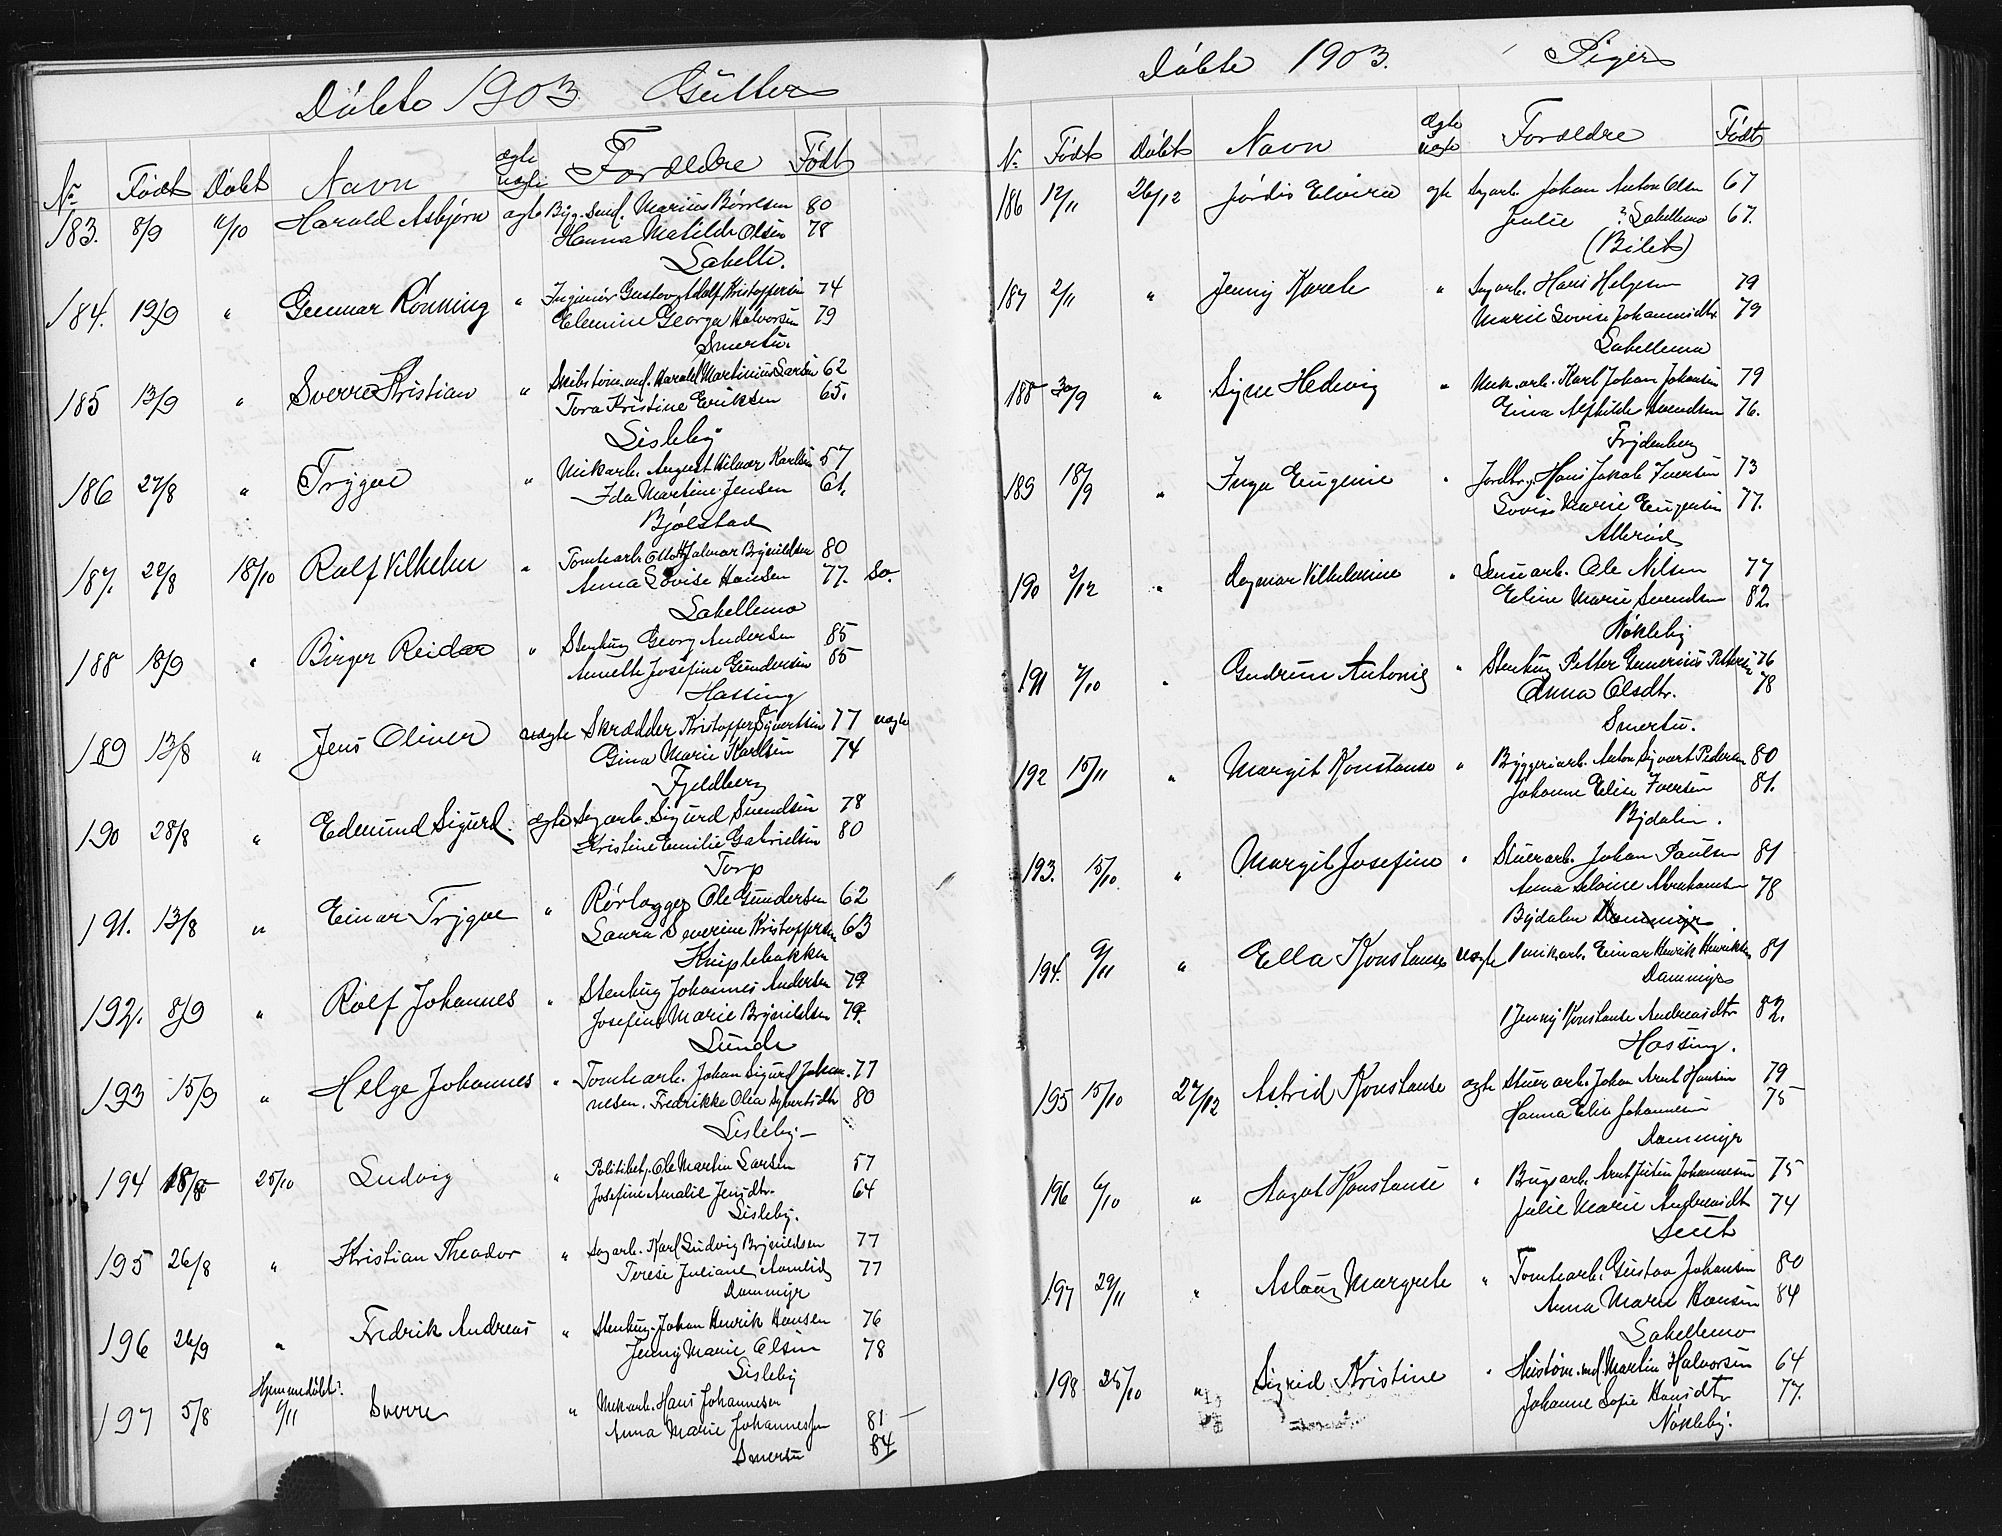 Døbte 1903 Gutter
Nr Født Døbt Navn ægte uægte Forældre Født
183. 8/9 4/10 Harald Asbjørn ægte Byg.smd. Marius Børresen 80
Hanna Matilde Olsen 78
Labelle.
184. 19/9 " Gunnar Rönning " Ingeniør Gustav Adolf Kristoffersen 74
Elemine Georga Halvorsen 79
Smertu.
185 13/9 " Sverre Kristian " Skibstøm.md. Harald Martinius Larsen 62
Tora Kristine Eriksen 65.
Lisleby
186 27/8 " Trygve " Mekarb. August Hilmar Karlsen 57
Ida Martine Jensen 61.
Bjølstad
187. 22/8 18/10 Rolf Vilhelm " Tomtearb. Otto Hjalmar Brynildsen 80
Anna Lovise Hansen 77.
Labellemo
188 18/9 " Birger Reidar " Stenhug Georg Andersen 85
Annette Josefine Gundersen 85
Hassing
189 13/8 " Jens Oliver uægte Skrædder Kristoffer Syvertsen 77 uægte
Gina Marie Karlsen 74
Fjeldberg
190 28/8 " Edmund Sigurd. ægte Sagarb. Sigurd Svendsen 78
Kristine Emilie Gabrielsen 80
Torp
191. 13/8 " Einar Trygve " Rørlægger Ole Gundersen 62
Laura Severine Kristoffersen 63
Kniplebakken
192. 8/9 " Rolf Johannes " Stenhug Johannes Andersen 79
Josefine Marie Brynildsen 79.
Lunde
193 15/9 " Helge Johannes " Tomtearb. Johan Sigurd Johan- 77
nesen. Fredrikke Olea Syvertsdtr 80
Lisleby -
194 18/8 25/10 Ludvig " Politibetj. Ole Martin Larsen 57
Josefine Amalie Jensdtr. 64
Lisleby.
195 26/8 " Kristian Theodor " Sagarb. Karl Ludvig Brynildsen 77
Terese Juliane 77
Dammyr
196 26/9 " Fredrik Andreas " Stenhug. Johan Henrik Hansen 76
Jenny Marie Olsen 78
Lisleby
197 5/8 Hjemmedøbt. 1/11 Sverre " Mekarb. Hans Johannesen 81
Anna Marie Johannessen 84
Smertu
Døbte 1903. Piger
Nr. Født Døbt Navn ægte uægte Forældre Født
186 12/11 26/12 Jørdis Elvira ægte Sagarb. Johan Anton Olsen 67
Julie ? Labellemo 67.
(Bilet)
187 2/11 " Jenny Karete " Sagarb. Hans Helgesen 79
Marie Lovise Johannesdtr. 79
Labellemo
188 30/9 " Signe Hedevig " Mek.arb. Karl Johan Johansen 79
Gina Alfhilde Svendsen 76.
Frydenberg
189 18/9 " Inga Eugenie " Jordbr. Hans Jakob Iversen 73
Lovise Marie Eugenie 77.
Allerød
190 2/12 " Dagmar Vilhelmine " Lensearb. Ole Nilsen 77
Eline Marie Svendsen 82.
Nökleby
191 7/10 " Gudrun Antonie " Stenhug Petter Gunerius Pettersen 76
Anna Olsdtr. 78
Smertu.
192 15/11 " Margit Konstanse " Byggeriarb. Anton Sigvart Pedersen 80
Johanne Elise Iversen 81.
Bydalen.
193. 15/10 " Margit Josefine " Stuerarb. Johan Paulsen 81
Anna Lovise Abrahamsen 78
Bydalen Dammyr
194. 9/11 " Ella Konstanse uægte Mekarb. Einar Henrik Henriksen 81
Dammyr
Jenny Konstanse Andreasdtr 82.
Hassing.
195 15/10 27/12 Astrid Konstanse ægte Stuerarb. Johan Arnt Hansen 79
Hanna Elise Johannesen 75
Dammyr
196 6/10 " Aagot Konstanse " Brugsarb. Arnt Justin Johannesen 75
Julie Marie Andreasdtr 74
Sent
197 29/11 " Aslaug Margrete " Tomtearb. Gustav Johansen 80
Anna Marie Hansen 84
Labellemo
198 25/10 " Sigrid Kristine " Hustøm.md. Martin Halvorsen 64
Johanne Sofie Hansdtr 77.
Nökleby.